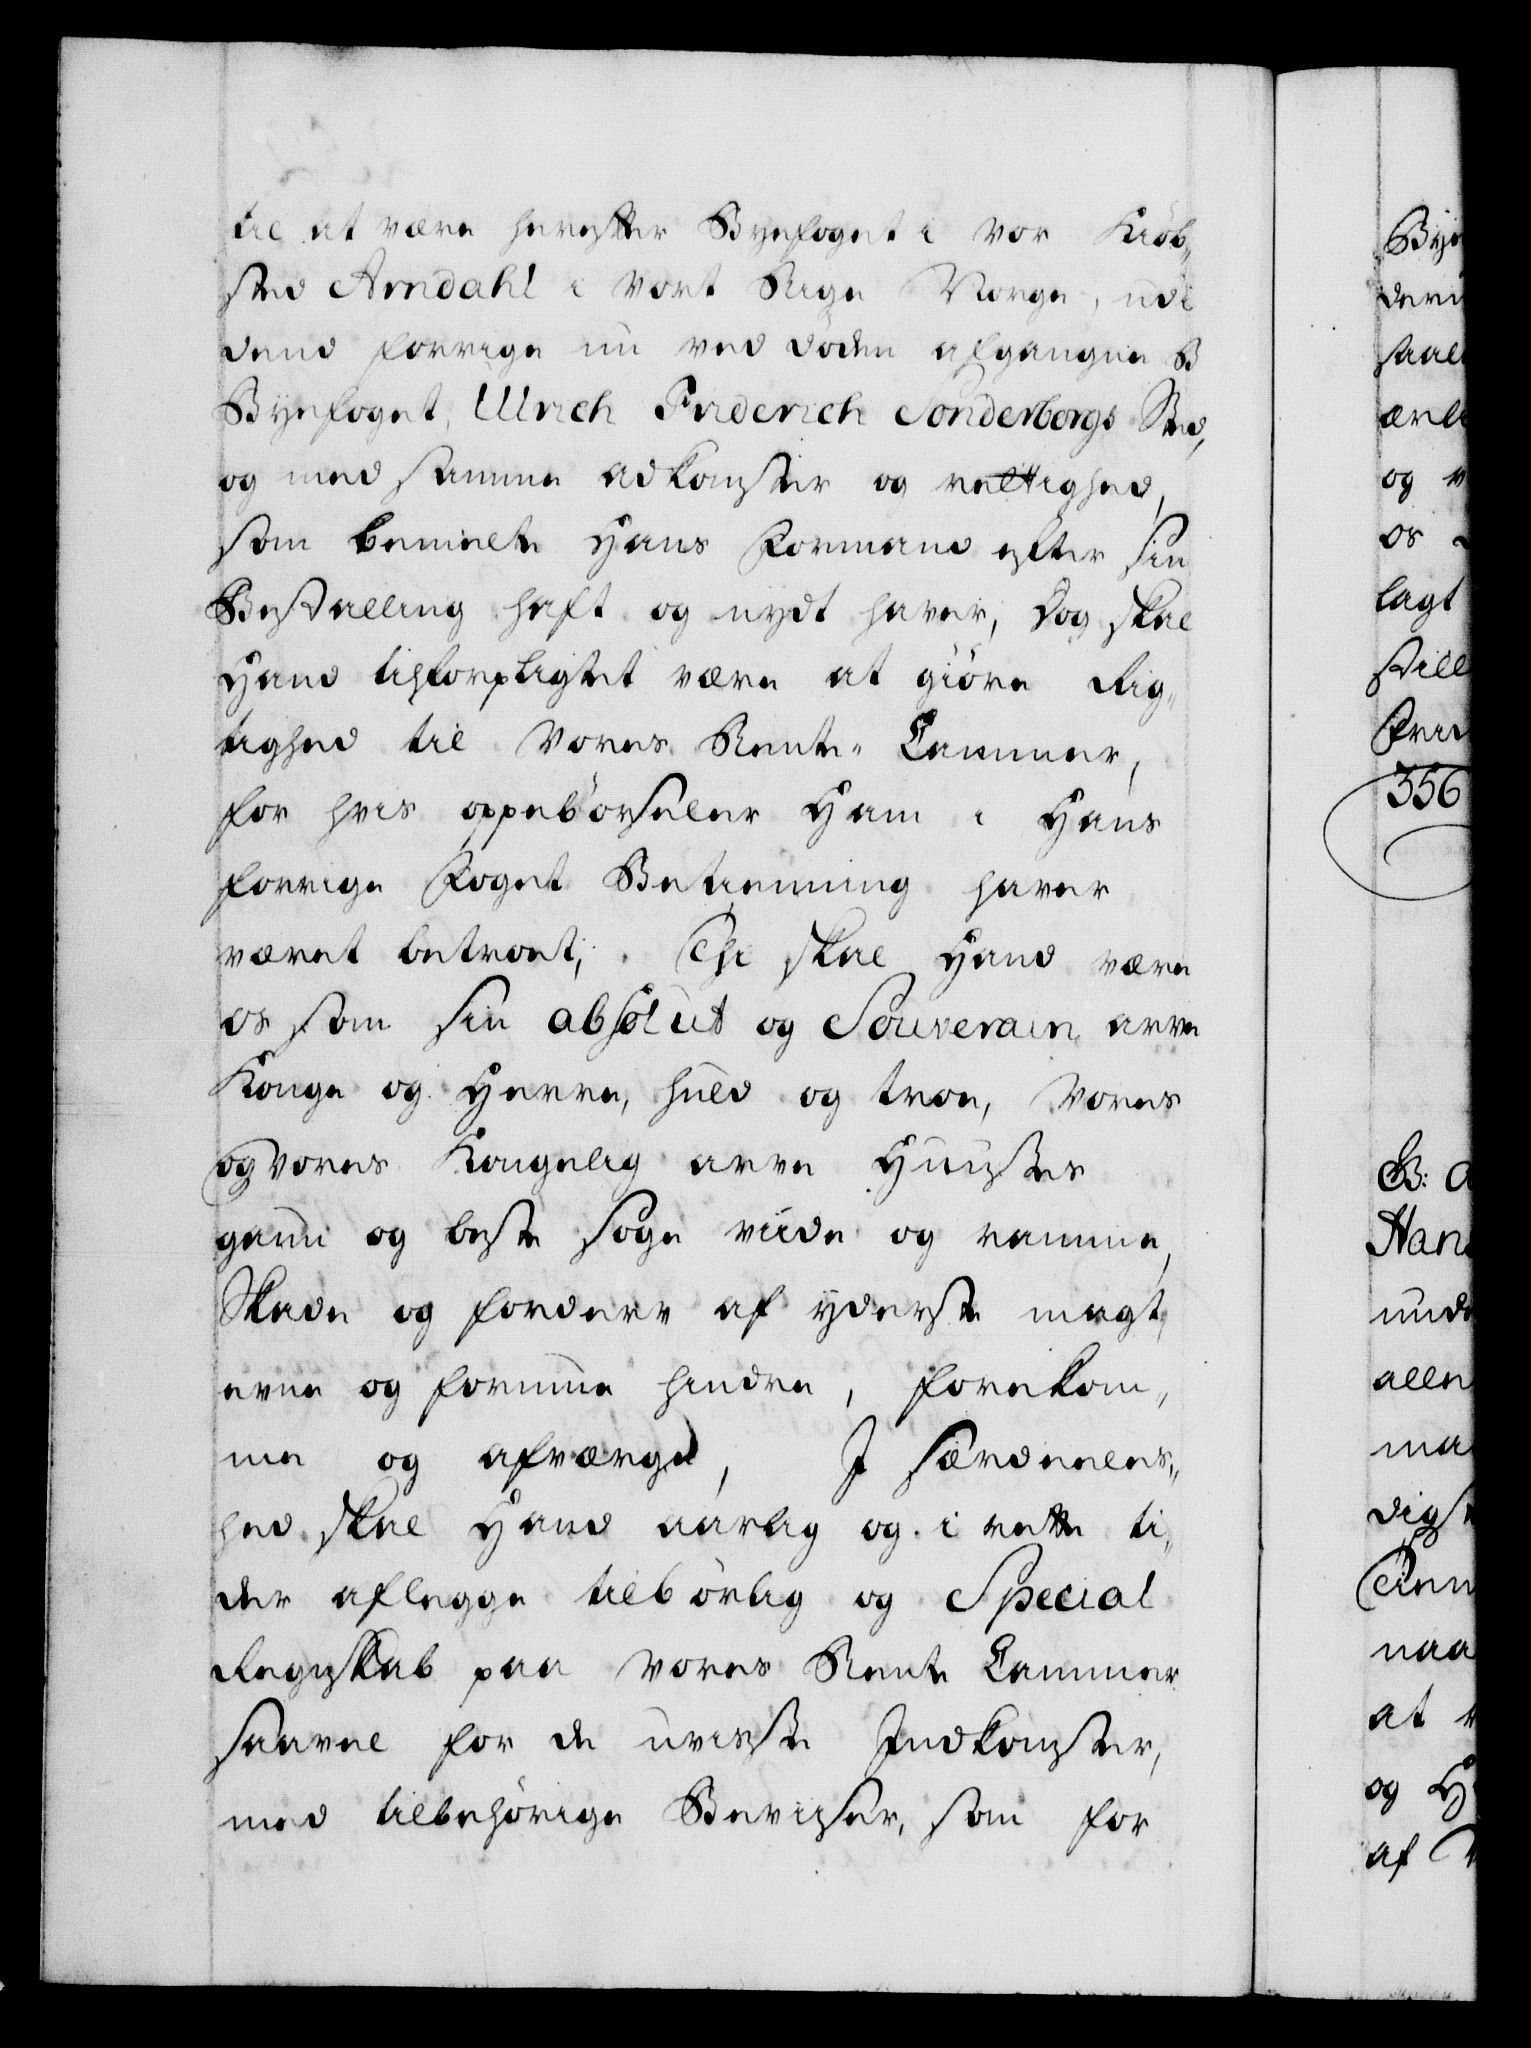 til at være herefter Byefoget i vor Kiöb„
sted Arndahl i Vort Rige Norge, udi
dend forrige nu ved döden afgangne B
Byefoget, Ulrich Friderich Sonderborgs Sted,
og med samme adkomster og rettighed,
som bemelte Hans Formand efter sin
Bestalling haft og nydt haver, Dog skal
Hand tilforpligtet være at giöre Rig„
tighed til Vores Rente„ Cammer,
for hvis oppebörseler Ham i Hans
forrige Foget Betienning haver
været betroet; Thi skal Hand være
os som sin absolut og Souverain arve
Konge og Herre, huld og troe, Vores
og vores Kongelig arve Huuses
gaun og beste söge viide og ramme,
Skade og forderv af yderste magt,
evne og formue hindre, forekom„
me og afværge, I særdeeles„
hed skal Hand aarlig og i rette ti„
der aflegge tilbörlig og Special
Regnskab paa Vores Rente Cammer
saavel for de uvisse Indkomster,
med tilbehörige Beviiser, som for
356